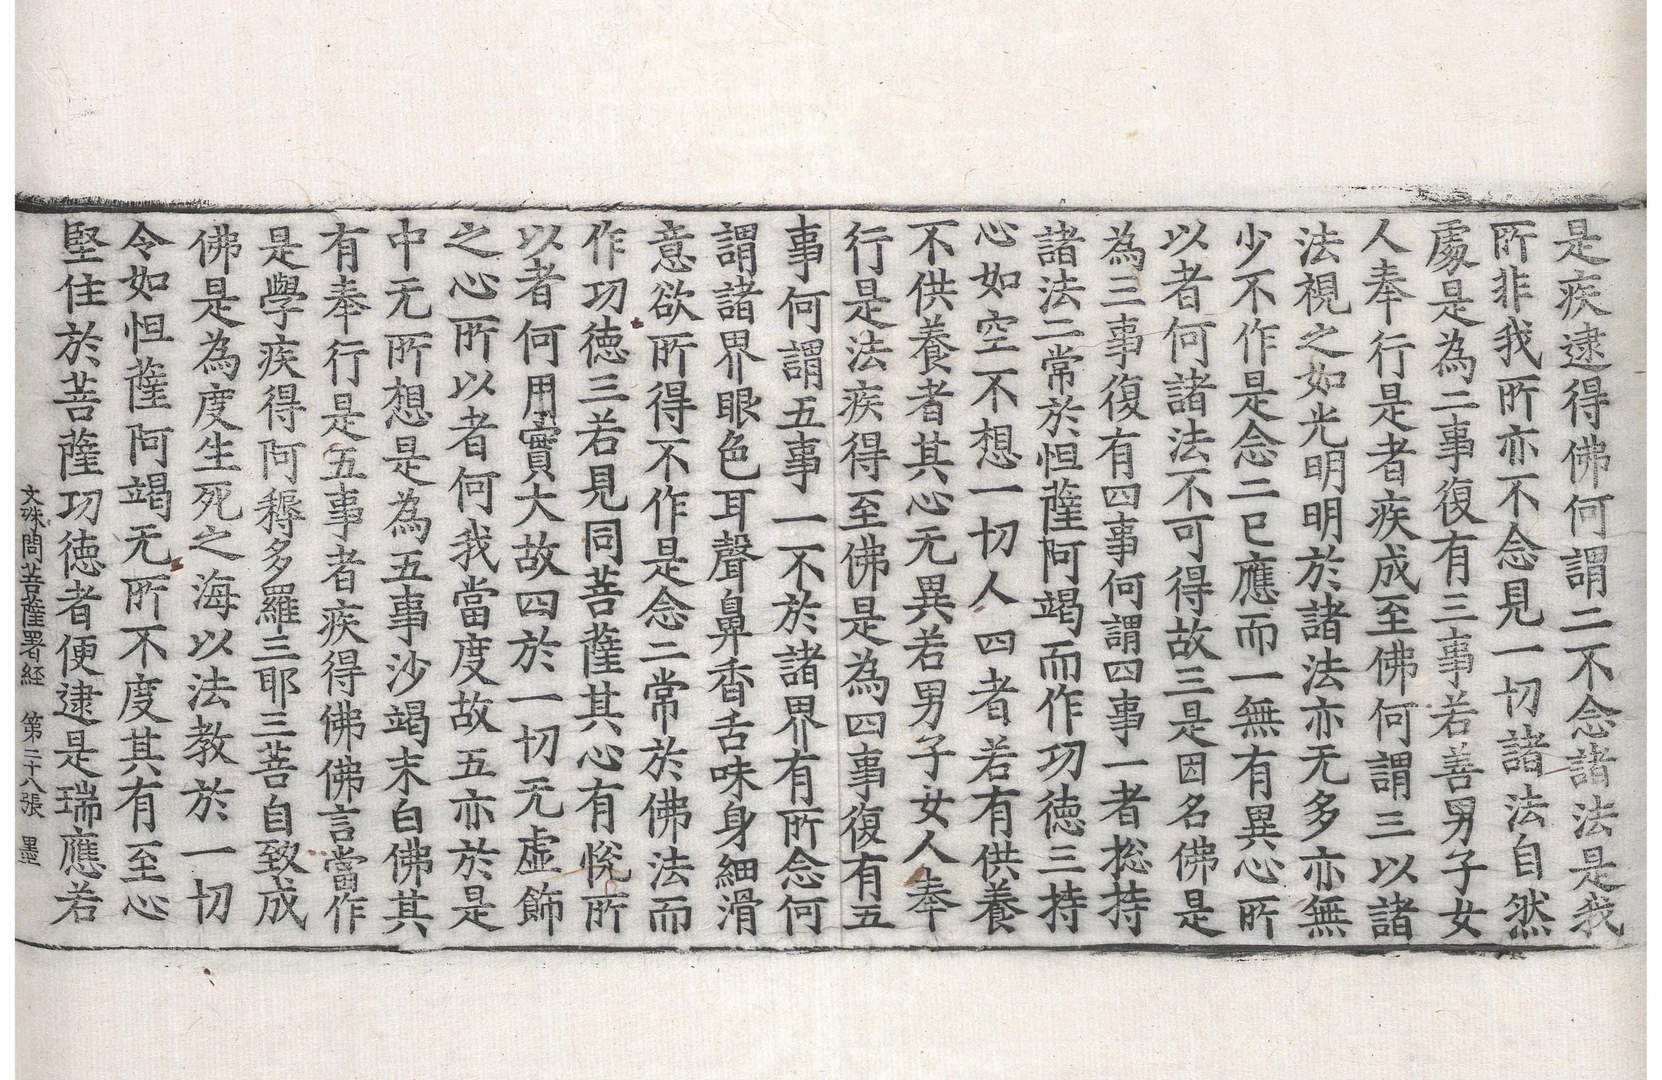 是疾逮得佛何謂二不念諸法是我
所非我所亦不念見一切諸法自然
處是為二事復有三事若善男子女
人奉行是者疾成至佛何謂三以諸
法視之如光明明於諸法亦无多亦無
少不作是念二已應而一無有異心所
以者何諸法不可得故三是因名佛是
為三事復有四事何謂四事一者揔持
諸法二常於怛薩阿竭而作功德三持
心如空不想一切人四者若有供養
不供養者其心无異若男子女人奉
行是法疾得至佛是為四事復有五
事何謂五事一不於諸界有所念何
謂諸界眼色耳聲鼻香舌味身細滑
意欲所得不作是念二常於佛法而
作功德三若見同菩薩其心有悅所
以者何用實大故四於一切无虛飾
之心所以者何我當度故五亦於是
中无所想是為五事沙竭末白佛其
有奉行是五事者疾得佛佛言當作
是學疾得阿耨多羅三耶三菩自致成
佛是為度生死之海以法教於一切
令如怛薩阿竭无所不度其有至心
堅住於菩薩功德者便逮是瑞應若
文殊問菩薩署経 第二十八張 墨